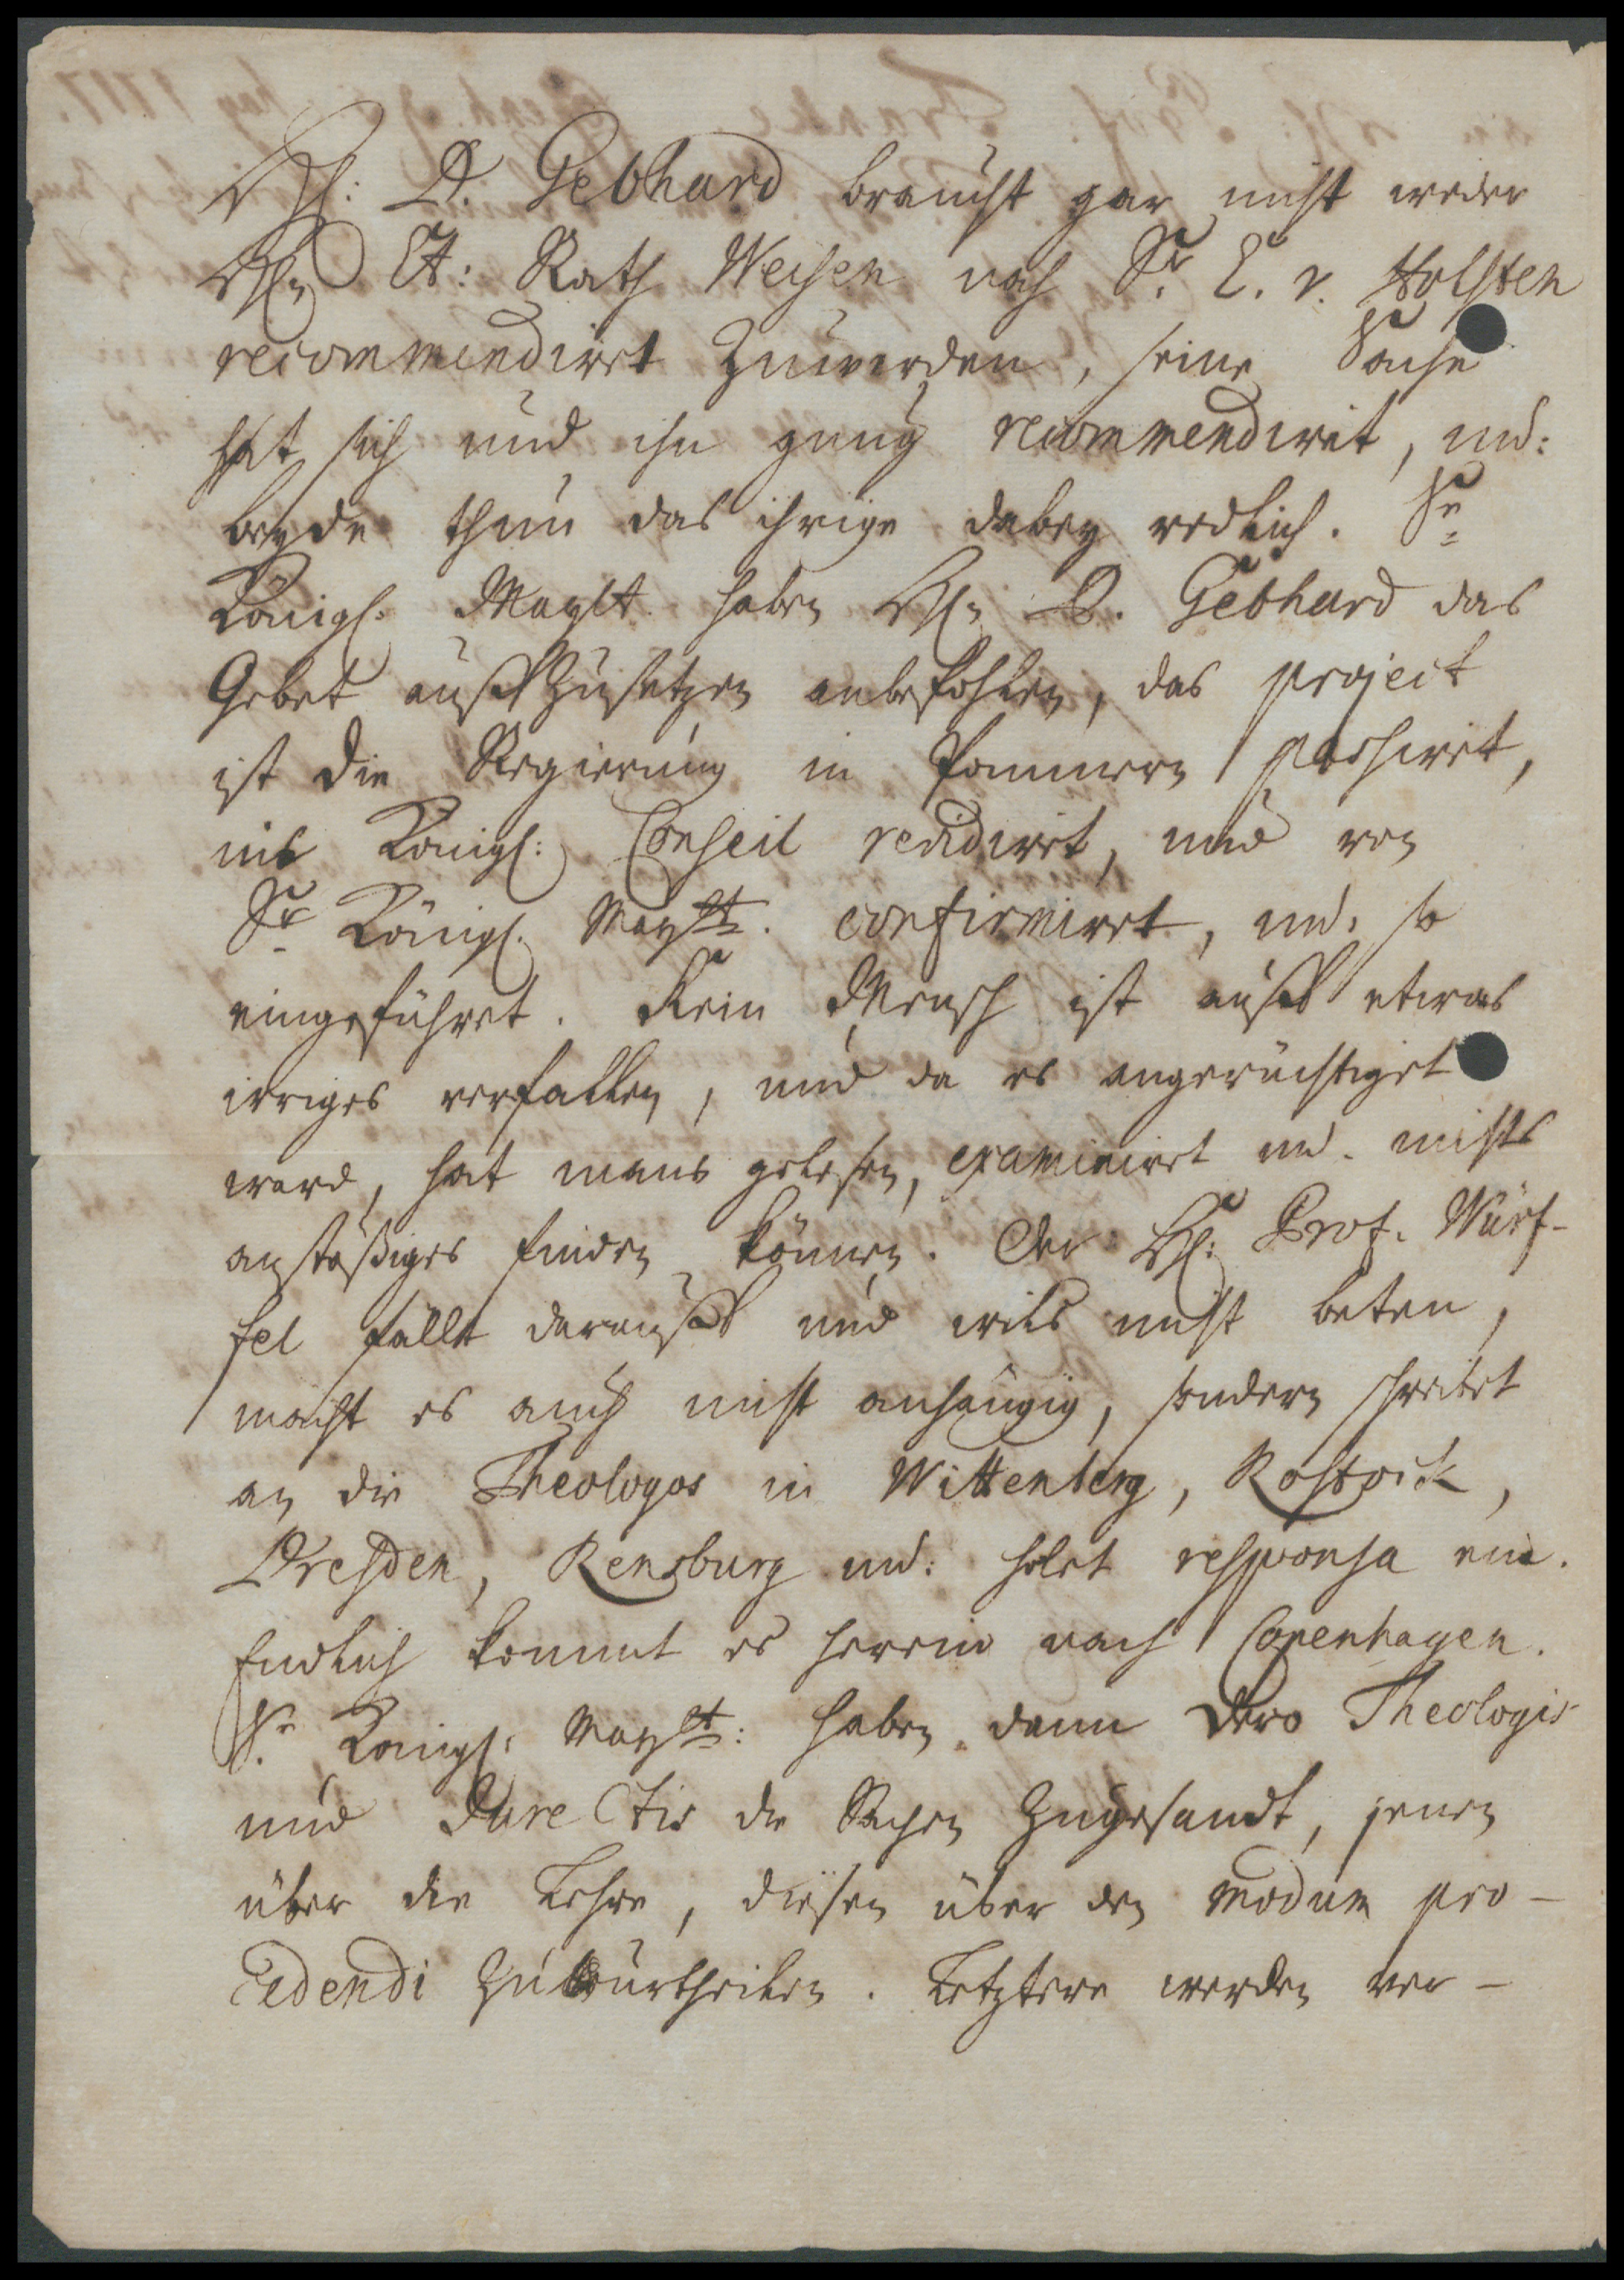 H: D. Gebhard braucht gar nicht weder
Hn Et: Rath Weisen noch Sr. E. v. Holsten
recommendirt zuwerden, seine Sache
hat sich und ihn gnug recommendirt, und:
beyde thun das ihrige dabey redlich. Sr
Königl. Mayst. haben Hn D. Gebhard das
Gebet auffzusetzen anbefohlen, das project
ist die Regierung in Pommern passiret,
ins Königl: Conseil revidirt, und von
Sr Königl. Mayst. confirmirt, und. so
eingeführet. Kein Mensch ist auff etwas
irriges verfallen, und da es angerüchtiget
ward, hat mans gelesen, examiniret und. nichts
anstößiges finden können. Der H: Prof. Würf-
fel fällt darauff und wils nicht beten,
macht es auch nicht anhängig, sondern schreibet
an die Theologos in Wittenberg, Rostock,
Dresden, Rensburg und: holet responsa ein.
Endlich kommt es herein nach Copenhagen.
Sr. Königl: Mayst: haben dann Dero Theologis
und JureCtis die Sachen zugesandt, jenen
über die Lehre, diesen über den modum pro-
cedendi zu urtheilen. Letztere werden ver-